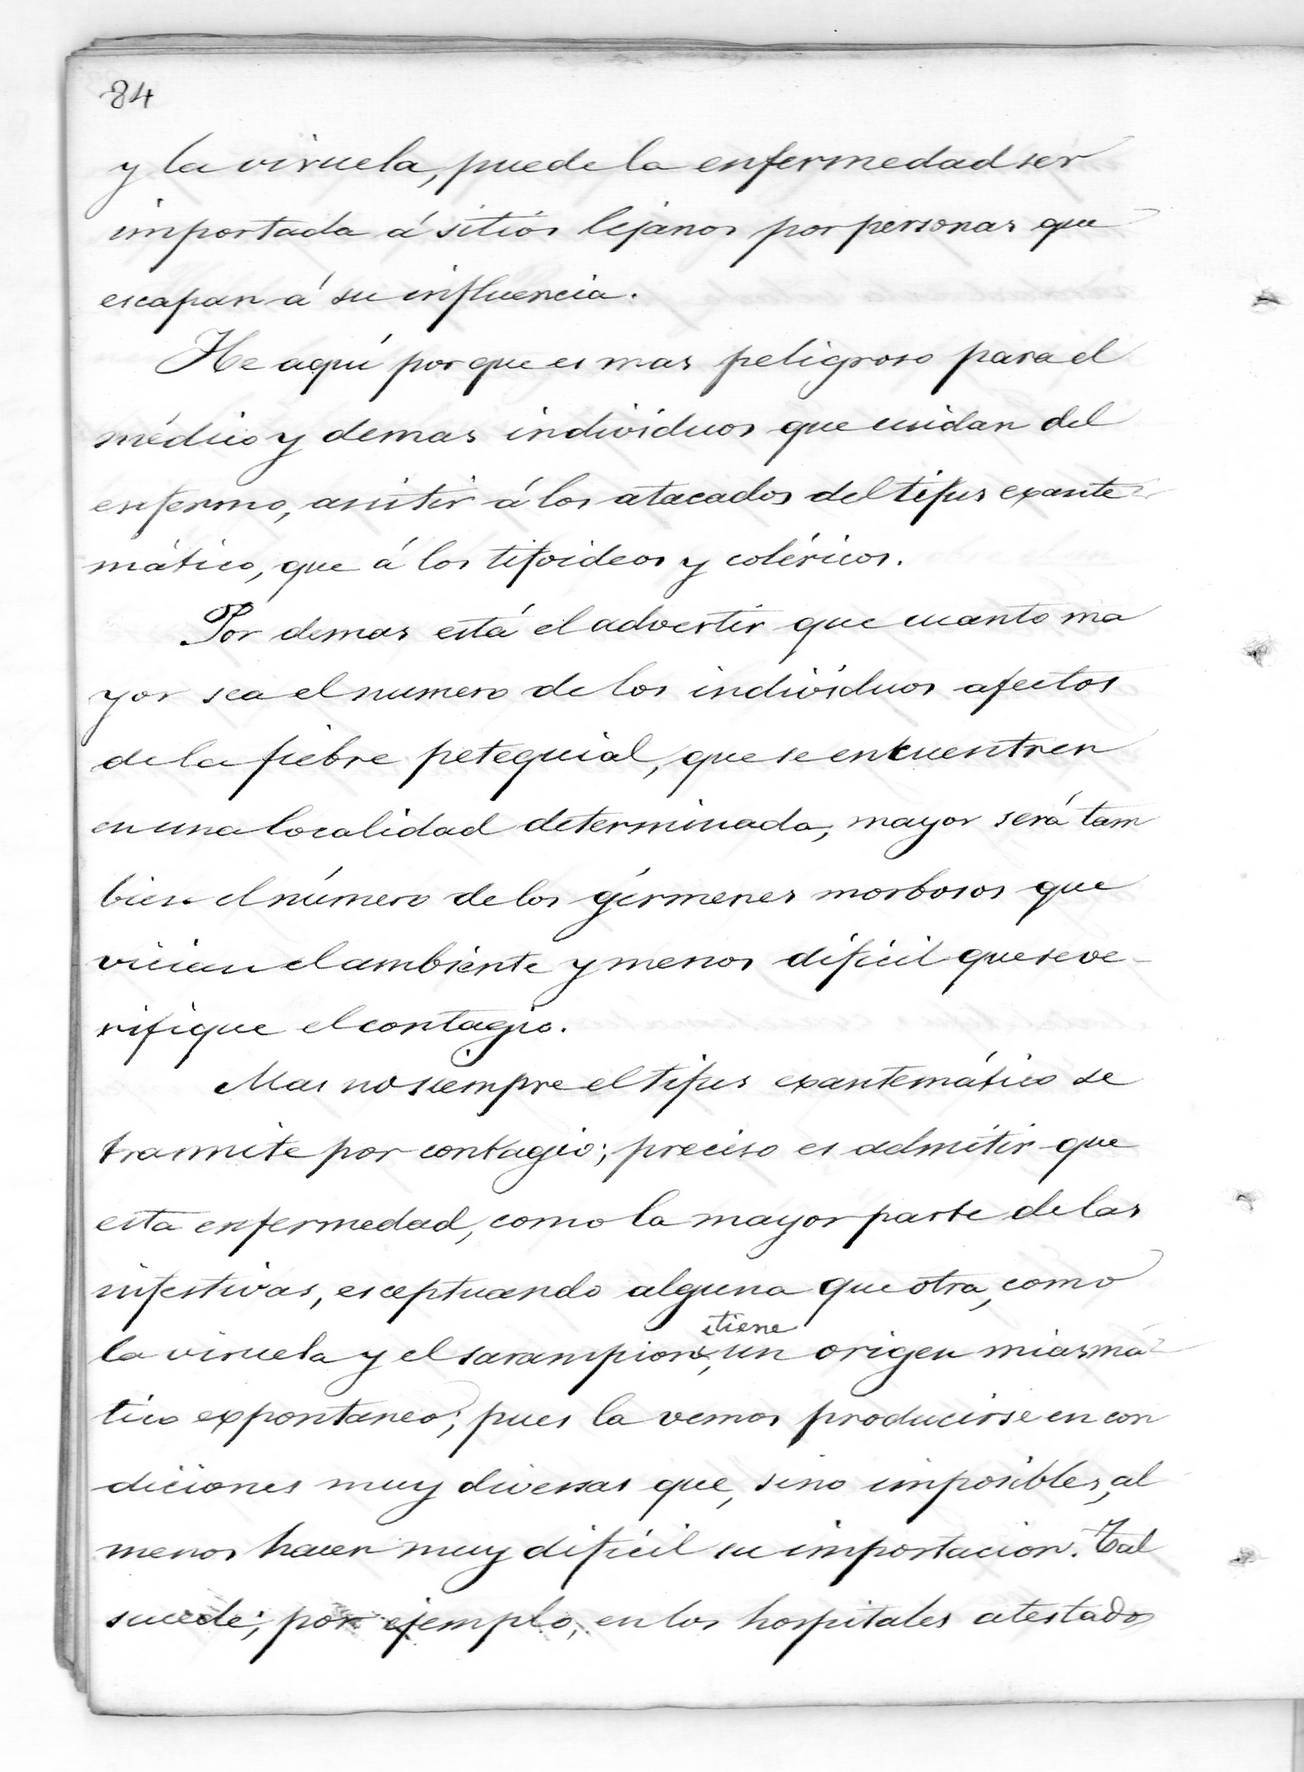 84
y la viruela, puede la enfermedad ser
importada á sitios lejanos por personas que
escapan á su influencia.
He aquí porque es mas peligroso para el
médico y demas individuos que cuidan del
enfermo, asistir á los atacados del tifus exante-
mático, que á los tifoideos y coléricos.
Por demas está el advertir que cuanto ma
yor sea el numero de los individuos afectos
de la fiebre petequial, que se encuentren
en una localidad determinada, mayor será tam
bien el número de los gérmenes morbosos que
vician el ambiente y menos dificil que se ve-
rifique el contagio.
Mas no siempre el tifus exantemático se
trasmite por contagio; preciso es admitir que
esta enfermedad, como la mayor parte de las
infestivas, esceptuando alguna que otra, como
la viruela y el sarampion, tiene un origen miasmá-
tico expontaneo; pues la vemos producirse en con
diciones muy diversas que, sino imposibles, al
menos hacen muy dificil su importacion. Tal
sucede; por ejemplo, en los hospitales atestados